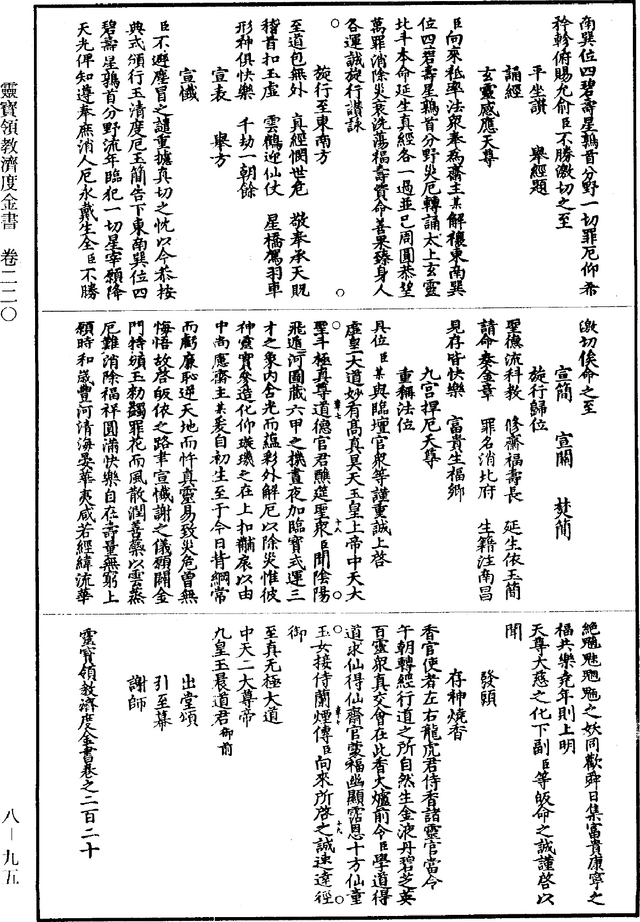 南巽位四碧壽星鶉首分野一切罪厄仰希
矜軫俯賜允俞臣不勝激切之至
平坐讚　舉經題
誦經
玄靈感應天尊
臣向來秪率法衆奉爲齋主某解禳東南巽
位四碧壽星鶉首分野災厄轉誦太上玄靈
北斗本命延生真經各一過並已周圓恭望
萬罪消除災衰洗蕩福壽賁命善果臻身人
各運誠旋行讚詠
旋行至東南方
至道包無外　真經憫世危　敬奉承天貺
稽首扣玉虛　雲鶴迎仙仗　星橋駕羽車
形神俱快樂　千劫一朝餘
宣表　舉方
宣懺
臣不避塵冒之譴重攄真切之忱以今恭按
典式頒行玉清度厄玉簡告下東南巽位四
碧壽星鶉首分野流年臨犯一切星宰願降
天光俾知遵奉庶消人厄永戴生全臣不勝
激切俟命之至
宣簡　宣關　焚簡
旋行歸位
聖德流科教　修齋福壽長　延生依玉簡
請命奏金章　罪名消北府　生籍注南昌
見存皆快樂　富貴生福鄉
九宮捍厄天尊
重稱法位
具位臣某與臨壇官衆等謹重誠上啓
虛皇大道妙有高真昊天玉皇上帝中天大
聖斗極真尊道德官君醮筵聖衆臣聞陰陽
飛遁河圖藏六甲之機晝夜加臨寶式運三
才之象內含光而蘊彩外解厄以除災惟彼
神靈實參造化仰璇璣之在上扣黼扆以由
中尚應齋主某爰自初生至于今日背綱常
而虧廉恥逆天地而忤真靈易致災危曾無
悔悟故啓皈依之路聿宣懺謝之儀願闢金
門特頒玉勑蠲罪花而風散潤善蘂以雲蒸
厄難消除福祥圓滿快樂自在壽量無窮上
願時和歲豐河清海晏華夷咸若經緯流華
絕魑魅魍魎之妖同歡舜日集富貴康寧之
福共樂堯年則上明
天尊大慈之化下副臣等皈命之誠謹啓以
聞
發願
存神燒香
香官使者左右龍虎君侍香諸靈官當令
午朝轉經行道之所自然生金液丹碧芝英
百靈衆真交會在此香火爐前令臣學道得
道求仙得仙齋官蒙福幽顯霑恩十方仙童
玉女接侍蘭煙傳臣向來所啓之誠速達徑
御
至真无極大道
中天二大尊帝
九皇玉晨道君御前
出堂頌
引至幕
謝師
靈寶領教濟度金書卷之二百二十
靈寶領教濟度金書　卷二二〇
八－九五